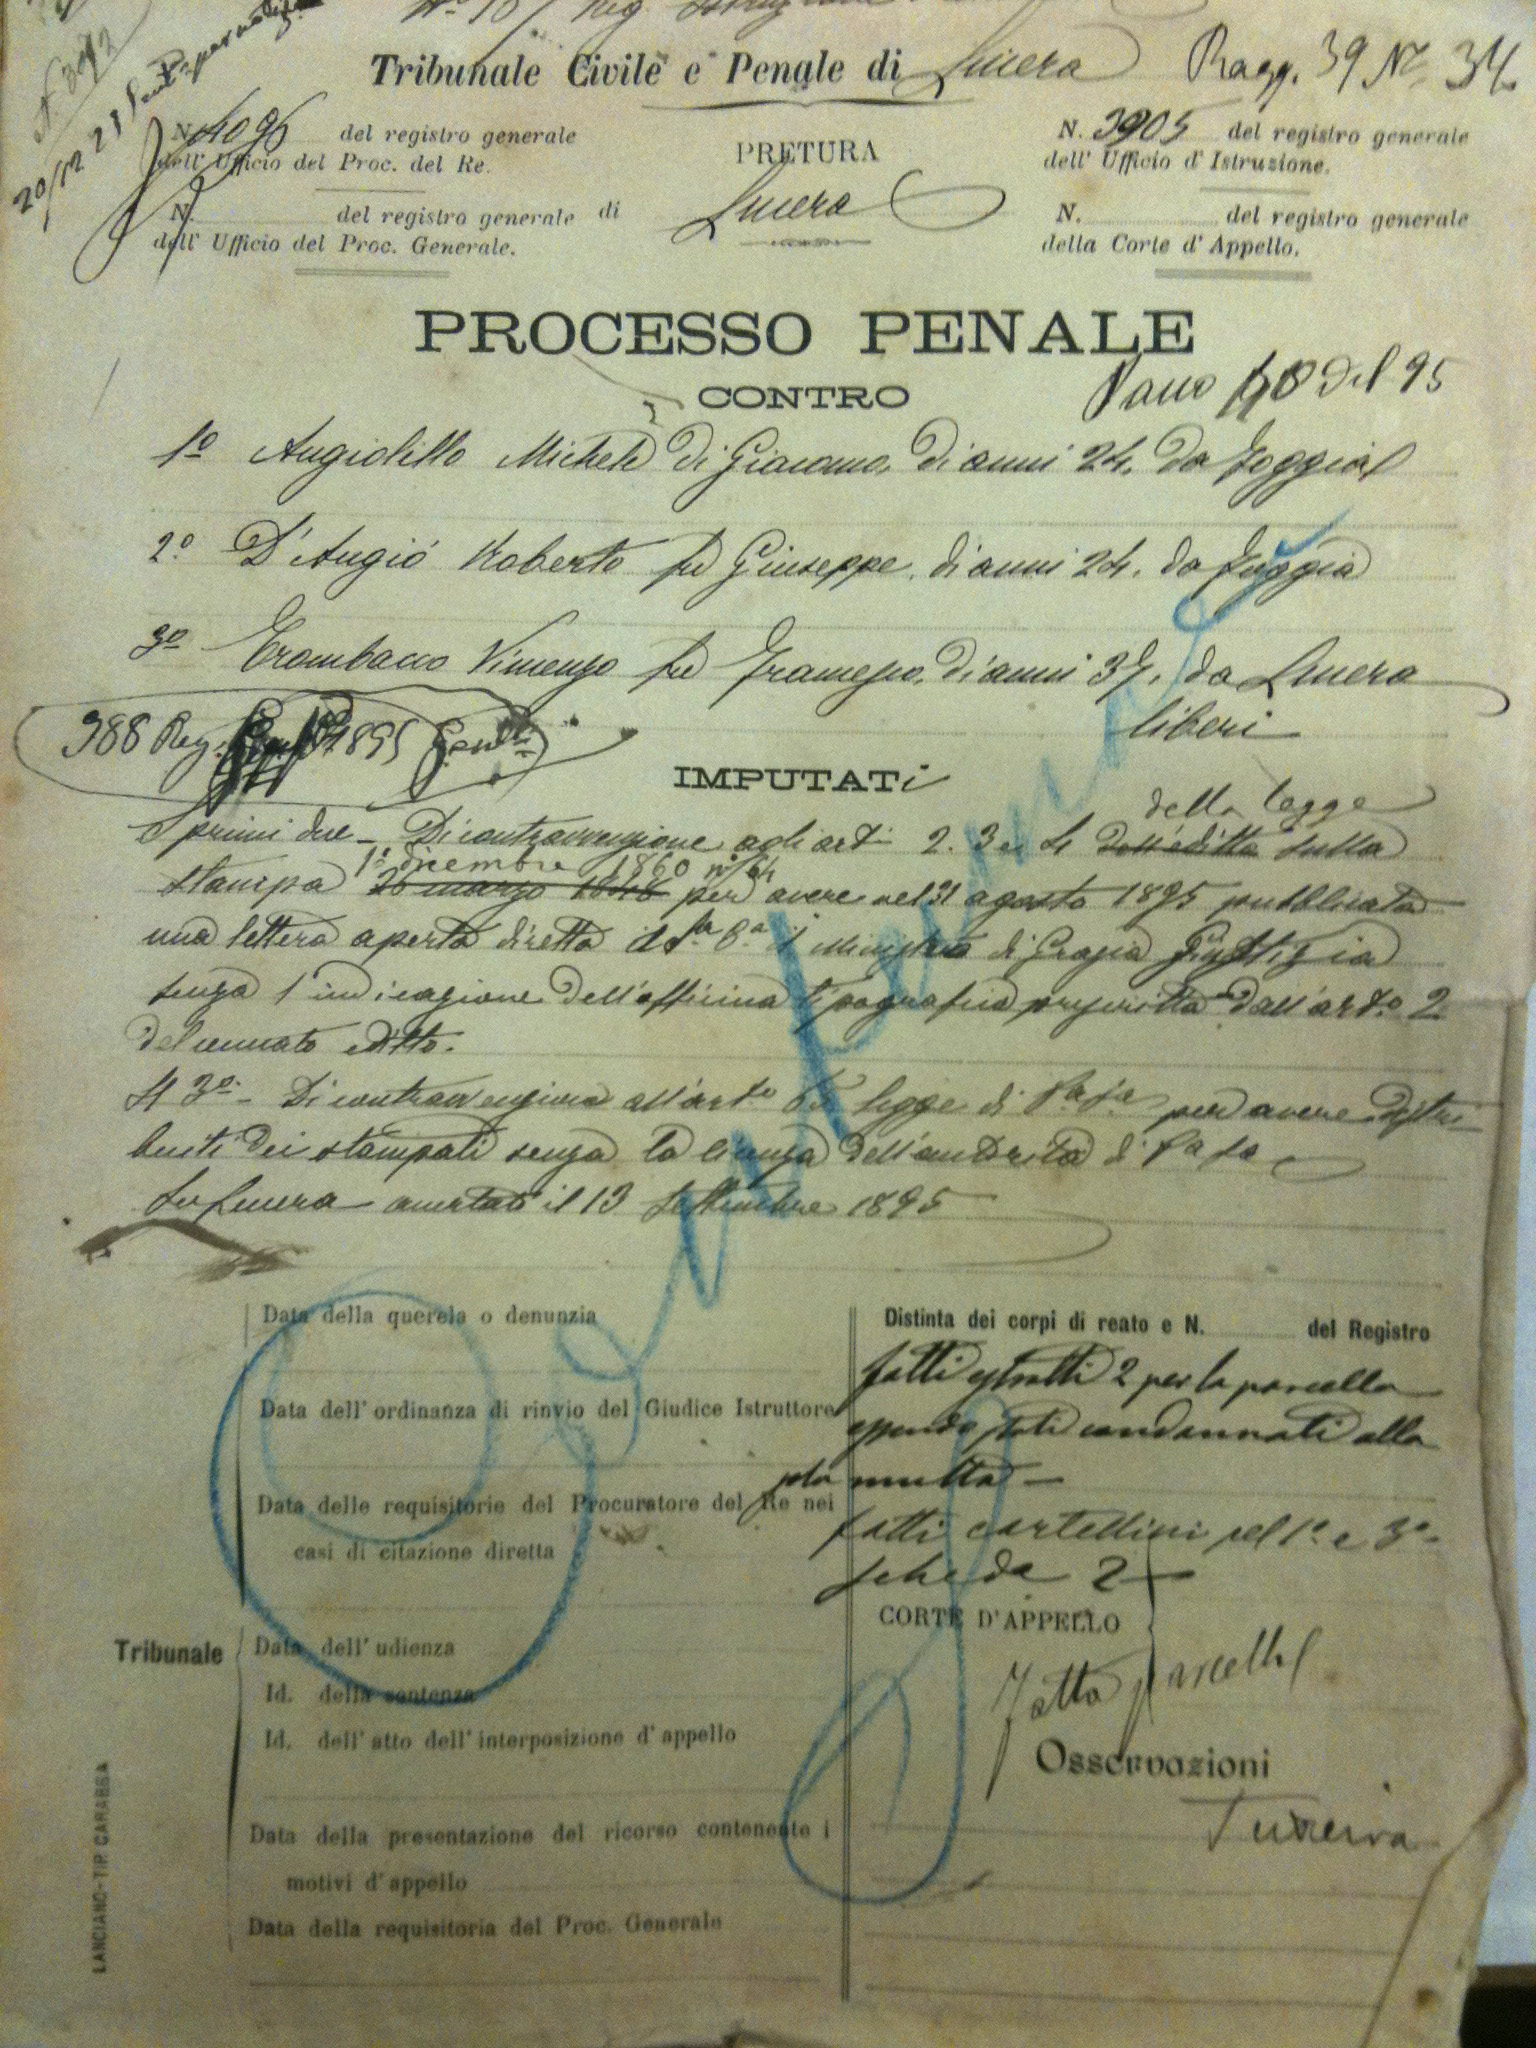 Tribunale Civile e Penale di Lucera Ragg. 39 N. 34
N. 4096 del registro generale
dell' Ufficio del Proc. del Re.
N. del registro generale
dell' Ufficio del Proc. Generale.
PRETURA
di Lucera
N. 3905 del registro generale
dell' Ufficio d' Istruzione.
N. del registro generale
della Corte d' Appello.
PROCESSO PENALE
CONTRO
del 95
1º Angiolillo Michele di Giacomo, di anni 24, da Foggia
2º D'Angiò Roberto fu Giuseppe, di anni 24, da Foggia
3º Trombacco Vincenzo fu Francesco, di anni 37, da Lucera
liberi
388 Reg. 1895
IMPUTATi
della legge
I primi due - Di contravvenzione agli arti 2. 3 e 4 dell'editto sulla
1º dicembre 1860 nº 64
stampa 26 marzo 1848 per avere nel 31 agosto 1895 pubblicata
una lettera aperta diretta a S. E. il Ministro di Grazia Giustizia
senza l'indicazione dell'officina tipografica prescritta dall'arto 2
del cennato editto.
Il 3º - Di contravvenzione all'arto 65 legge di P. S. per avere distri
buiti dei stampati senza la licenza dell'autorità di P. S.
In Lucera accertato il 13 Settembre 1895
Data della querela o denunzia
Data dell' ordinanza di rinvio del Giudice Istruttore
Data delle requisitorie del Procuratore del Re nei
casi di citazione diretta
Tribunale
Data dell' udienza
Id. della sentenza
Id. dell' atto dell' interposizione d' appello
Data della presentazione del ricorso contenente i
motivi d' appello
Data della requisitoria del Proc. Generale
Distinta dei corpi di reato e N. del Registro
fatti estratti 2 per la parcella
essendo stati condannati alla
sola multa -
fatti cartellini pel 1º e 3º -
scheda 2
CORTE D'APPELLO
Fatta parcella
Osservazioni
LANCIANO-TIP. CARABBA